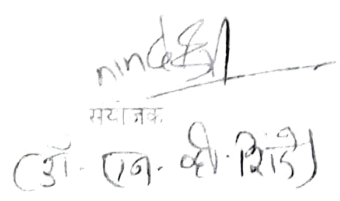 संयोजक
(डॉ. एन. व्ही. शिंदे)